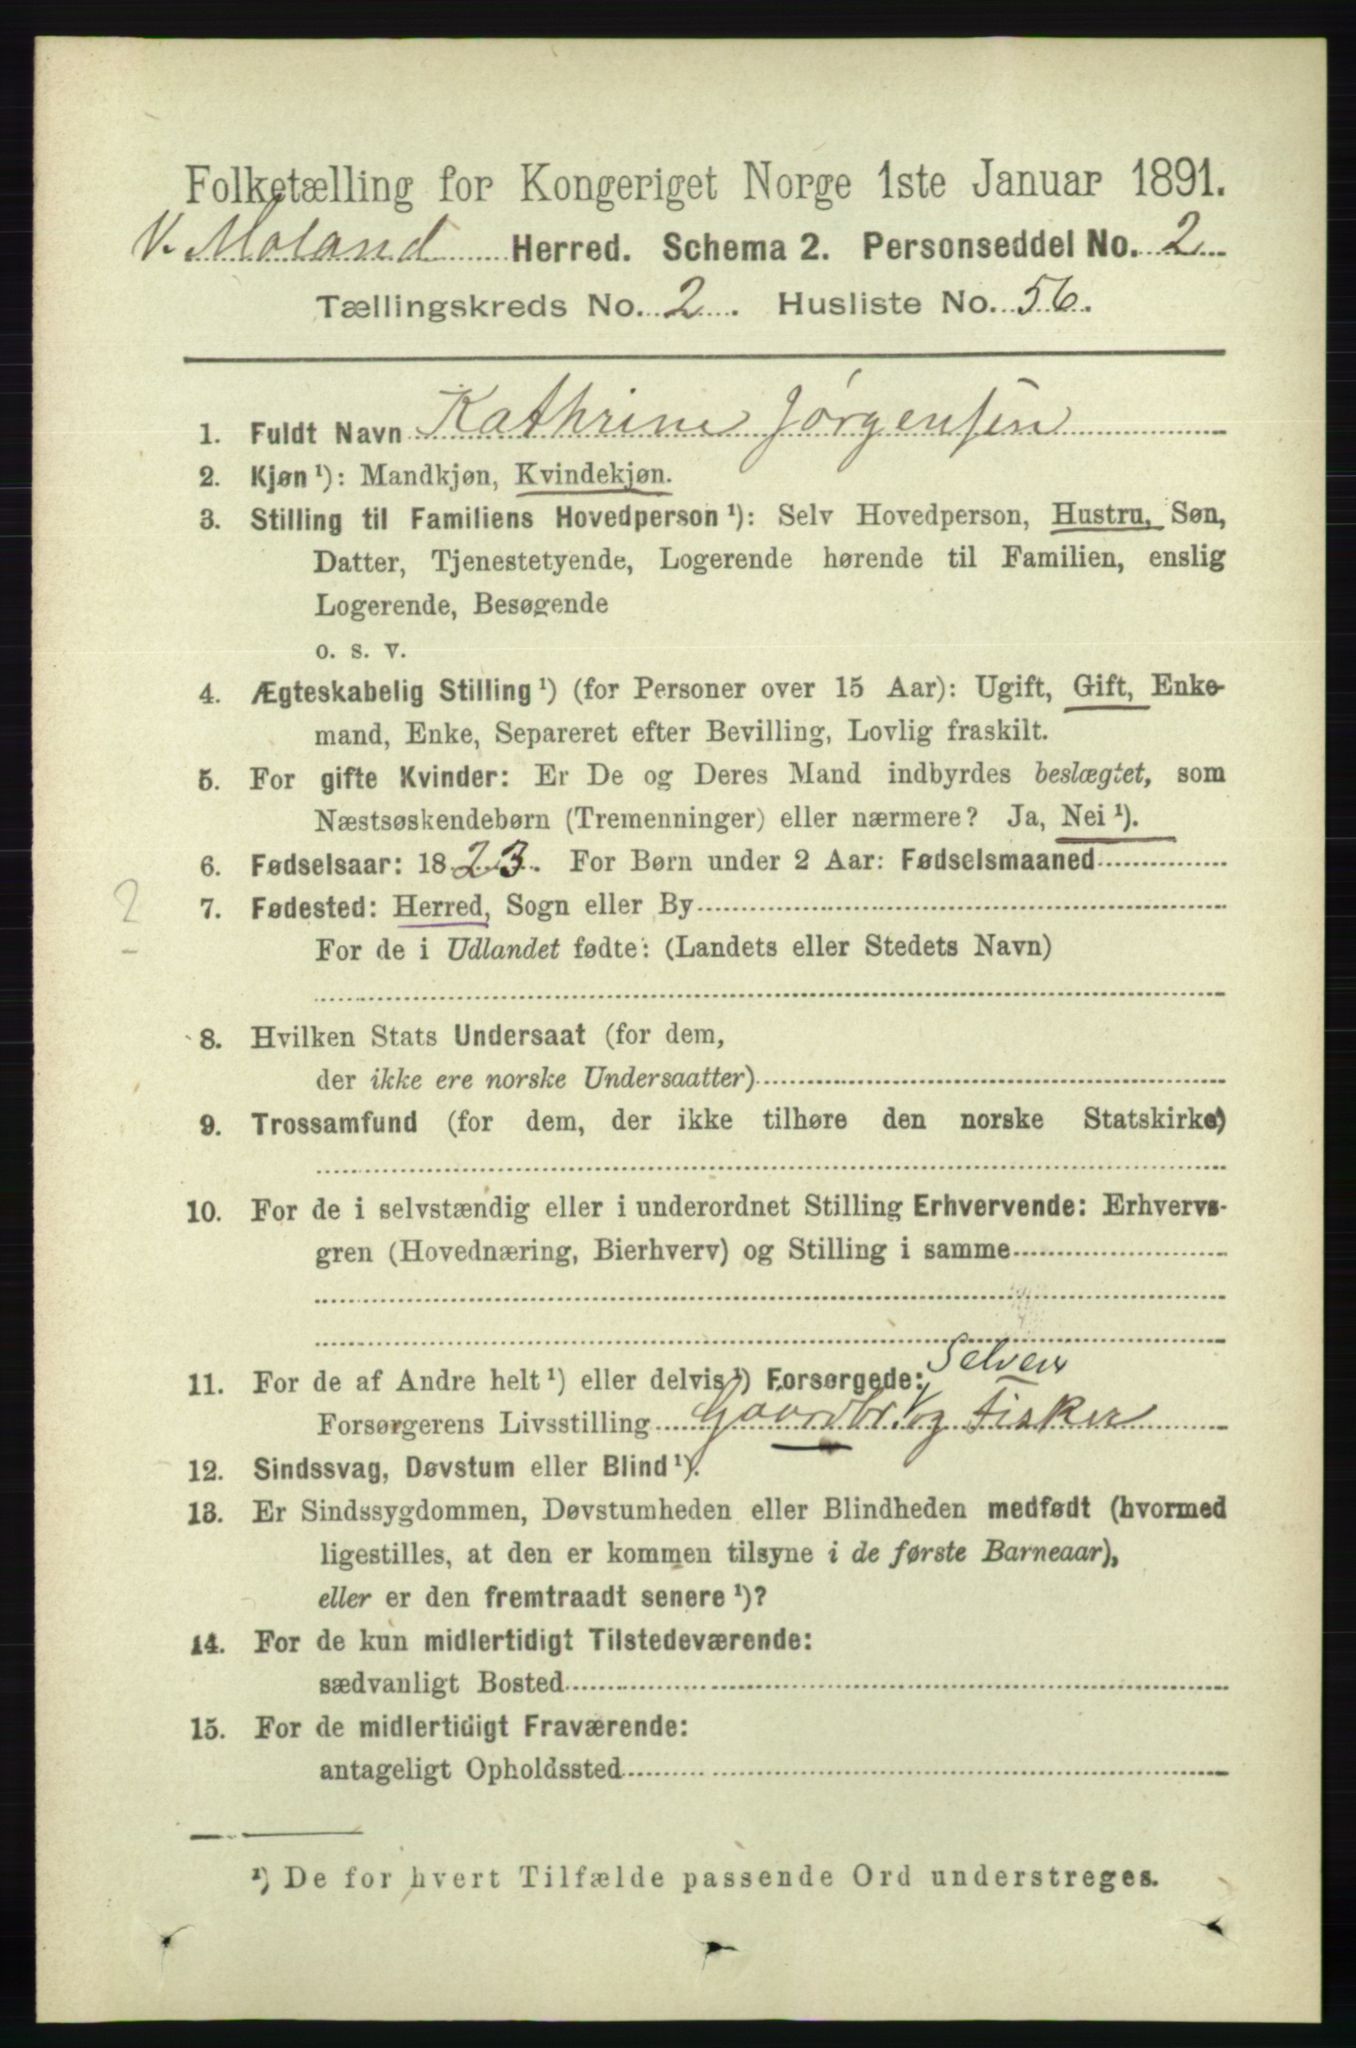 Folketælling for Kongeriget Norge 1ste Januar 1891.
V. Moland Herred. Schema 2. Personseddel No. 2
Tællingskreds No. 2. Husliste No. 56.
1. Fuldt Navn Kathrine Jørgensen
2. Kjøn ¹): Mandkjøn, Kvindekjøn.
3. Stilling til Familiens Hovedperson ¹): Selv Hovedperson, Hustru, Søn,
Datter, Tjenestetyende, Logerende hørende til Familien, enslig
Logerende, Besøgende
o. s. v.
4. Ægteskabelig Stilling ¹) (for Personer over 15 Aar): Ugift, Gift, Enke-
mand, Enke, Separeret efter Bevilling, Lovlig fraskilt.
5. For gifte Kvinder: Er De og Deres Mand indbyrdes beslægtet, som
Næstsøskendebørn (Tremenninger) eller nærmere? Ja, Nei ¹).
6. Fødselsaar: 1823. For Børn under 2 Aar: Fødselsmaaned
2
7. Fødested: Herred, Sogn eller By
For de i Udlandet fødte: (Landets eller Stedets Navn)
8. Hvilken Stats Undersaat (for dem,
der ikke ere norske Undersaatter)
9. Trossamfund (for dem, der ikke tilhøre den norske Statskirke)
10. For de i selvstændig eller i underordnet Stilling Erhvervende: Erhvervs-
gren (Hovednæring, Bierhverv) og Stilling i samme
11. For de af Andre helt ¹) eller delvis ¹) Forsørgede: Selveier
Forsørgerens Livsstilling Gaardbr. og Fisker
12. Sindssvag, Døvstum eller Blind ¹).
13. Er Sindssygdommen, Døvstumheden eller Blindheden medfødt (hvormed
ligestilles, at den er kommen tilsyne i de første Barneaar),
eller er den fremtraadt senere ¹)?
14. For de kun midlertidigt Tilstedeværende:
sædvanligt Bosted
15. For de midlertidigt Fraværende:
antageligt Opholdssted
¹) De for hvert Tilfælde passende Ord understreges.